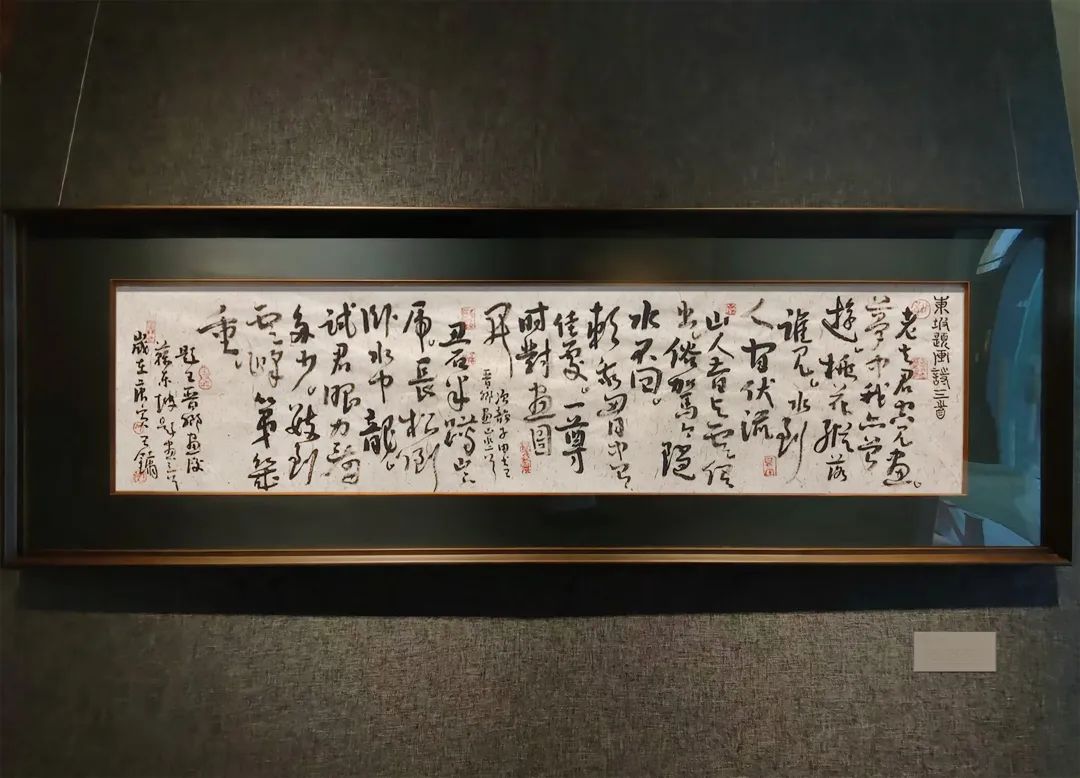 東坡題畫詩三首
老去君空见畫。
夢中我亦曾
遊。桃花縱落
誰见。水到
人间伏流
山人昔与雲俱
出俗駕今隨
水不回。
賴我胸中有
佳處。一尊
时對畫圖
開
次韻子由書王
晋卿畫山水
丑石半蹲山下
虎。長松倒
卧水中龍。
試君眼力看
多少。數到
雲峰第幾
重。
題王晋卿畫後
蘇東坡題畫三首
歲在庚寅王鏞